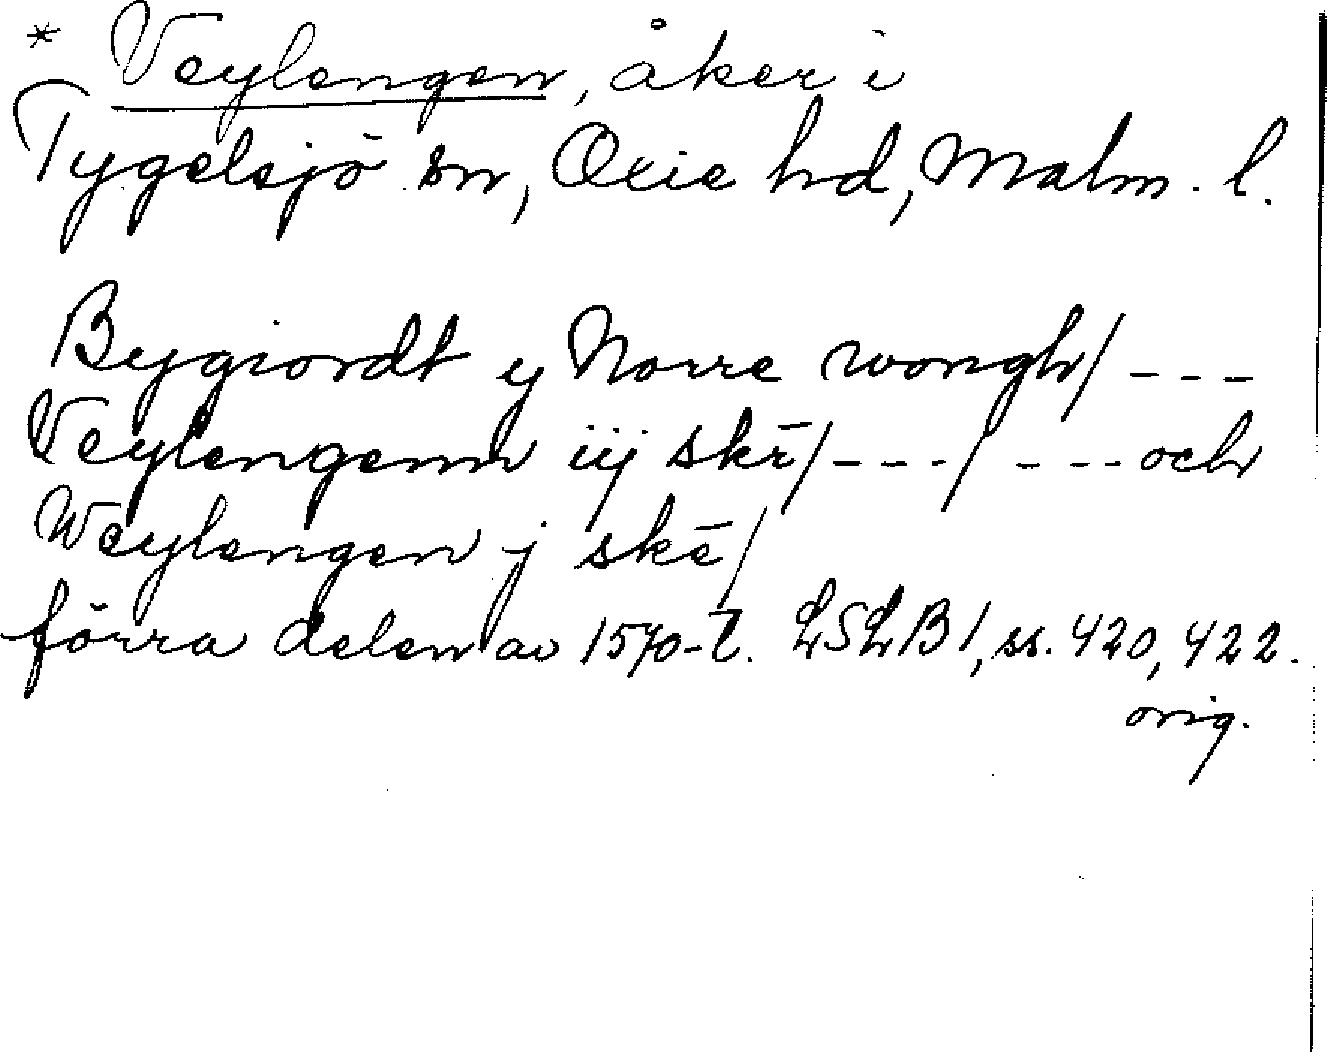 * Veylengen, åker i
Tygelsjö sn, Oxie hd, Malm. l.
Bygiordt y Norre wongh/ ---
Veylengenn iij skē/---/ --- och
Weylengen j skē/
förra delen av 1570-t. LSLB 1, ss. 420, 422.
orig.